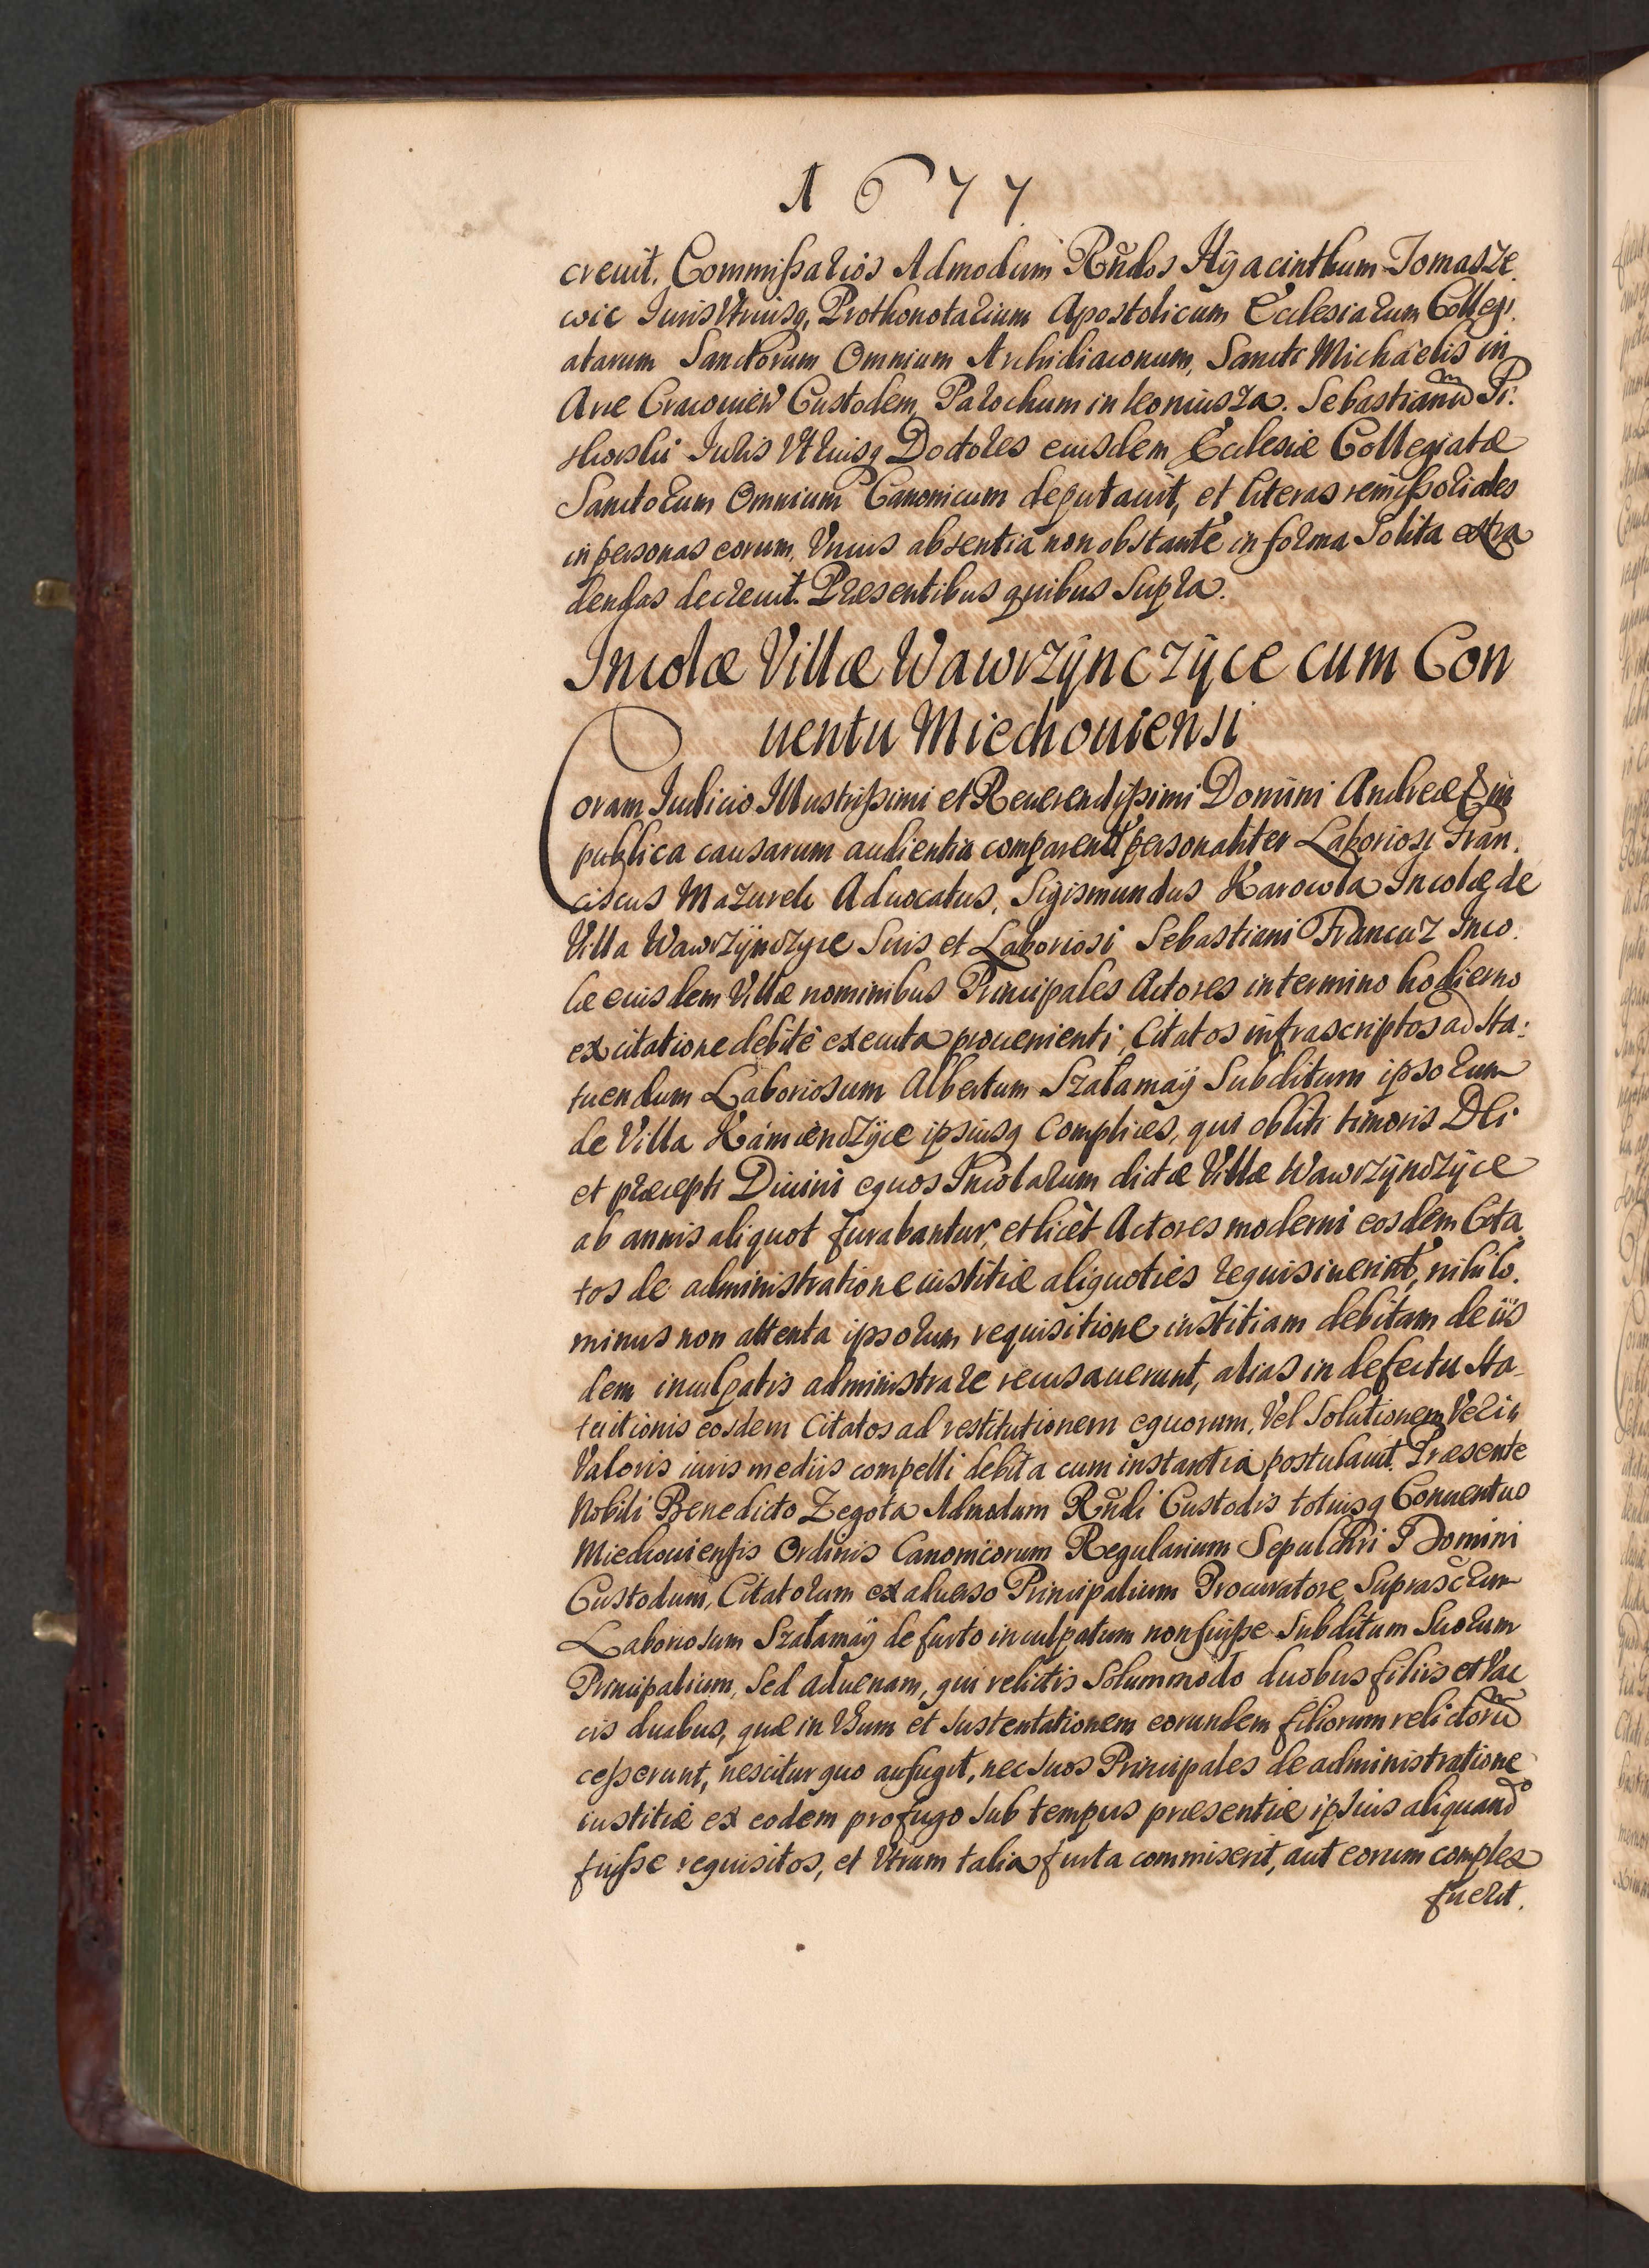 1677
creuit. Commissarios Admodum Rndos Hyacinthum Tomasze
wic Iuris Vtriusq, Prothonotarium Apostolicum Ecclesiarum Collegi
atarum Sanctorum Omnium Archidiaconum, Sancti Michaelis in
Arce Cracouien Custodem, Parochum in Koniusza. Sebastianum Pi
skorski Iuris Vtriusq Doctores eiusdem Ecclesiæ Collegiatæ
Sanctorum Omnium Canonicum deputauit, et literas remissoriales
in personas eorum, Vnius absentia non obstante in forma solita extra
dendas decreuit. Præsentibus quibus supra.
Incolæ Villæ Wawrzÿnczÿce cum Con
uentu Miechouiensi
Coram Iudicio Illustrissimi et Reuerendissimi Domini Andreæ E in
publica causarum audientia comparentes personaliter Laboriosi Fran
ciscus Mazurek Aduocatus, Sigismundus Karowła Incolæ de
Villa Wawrzÿnczyce suis et Laboriosi Sebastiani Francuz Inco
læ eiusdem Villæ nominibus Principales Actores in termino hodierno
ex citatione debitè executa prouenienti, Citatos infrascriptos ad sta:
tuendum Laboriosum Albertum Szałamaÿ Subditum ipsorum
de Villa Kamienczÿce ipsiusq Complices, qui obliti timoris DEi
et præcepti Diuini equos Incolarum dictæ Villæ Wawrzÿnczÿce
ab annis aliquot furabantur, et licèt Actores moderni eosdem Cita
tos de administratione iustitiæ aliquoties requisiuerint, nihilo
minus non attenta ipsorum requisitione iustitiam debitam de iis
dem inculpatis administrare recusauerunt, alias in defectu sta
tuitionis eosdem Citatos ad restitutionem equorum, Vel solutionem Veri
Valoris iuris mediis compelli debita cum instantia postulauit. Præsente
Nobili Benedicto Zegota Admodum Rndi Custodis totiusq Conuentus
Miechouiensis Ordinis Canonicorum Regularium Sepulchri Domini
Custodum, Citatorum ex aduerso Principalium Procuratore, suprasctum
Laboriosum Szałamaÿ de furto inculpatum non fuisse Subditum suorum
Principalium, sed aduenam, qui relictis solummodo duobus filiis et Vac
cis duabus, quæ in Vsum et sustentationem eorundem filiorum relictorum
cesserunt, nescitur quo aufugit, nec suos Principales de administratione
iustitiæ ex eodem profugo sub tempus præsentiæ ipsius aliquando
fuisse requisitos, et Vtrum talia furta commiserit, aut eorum complex
fuerit.